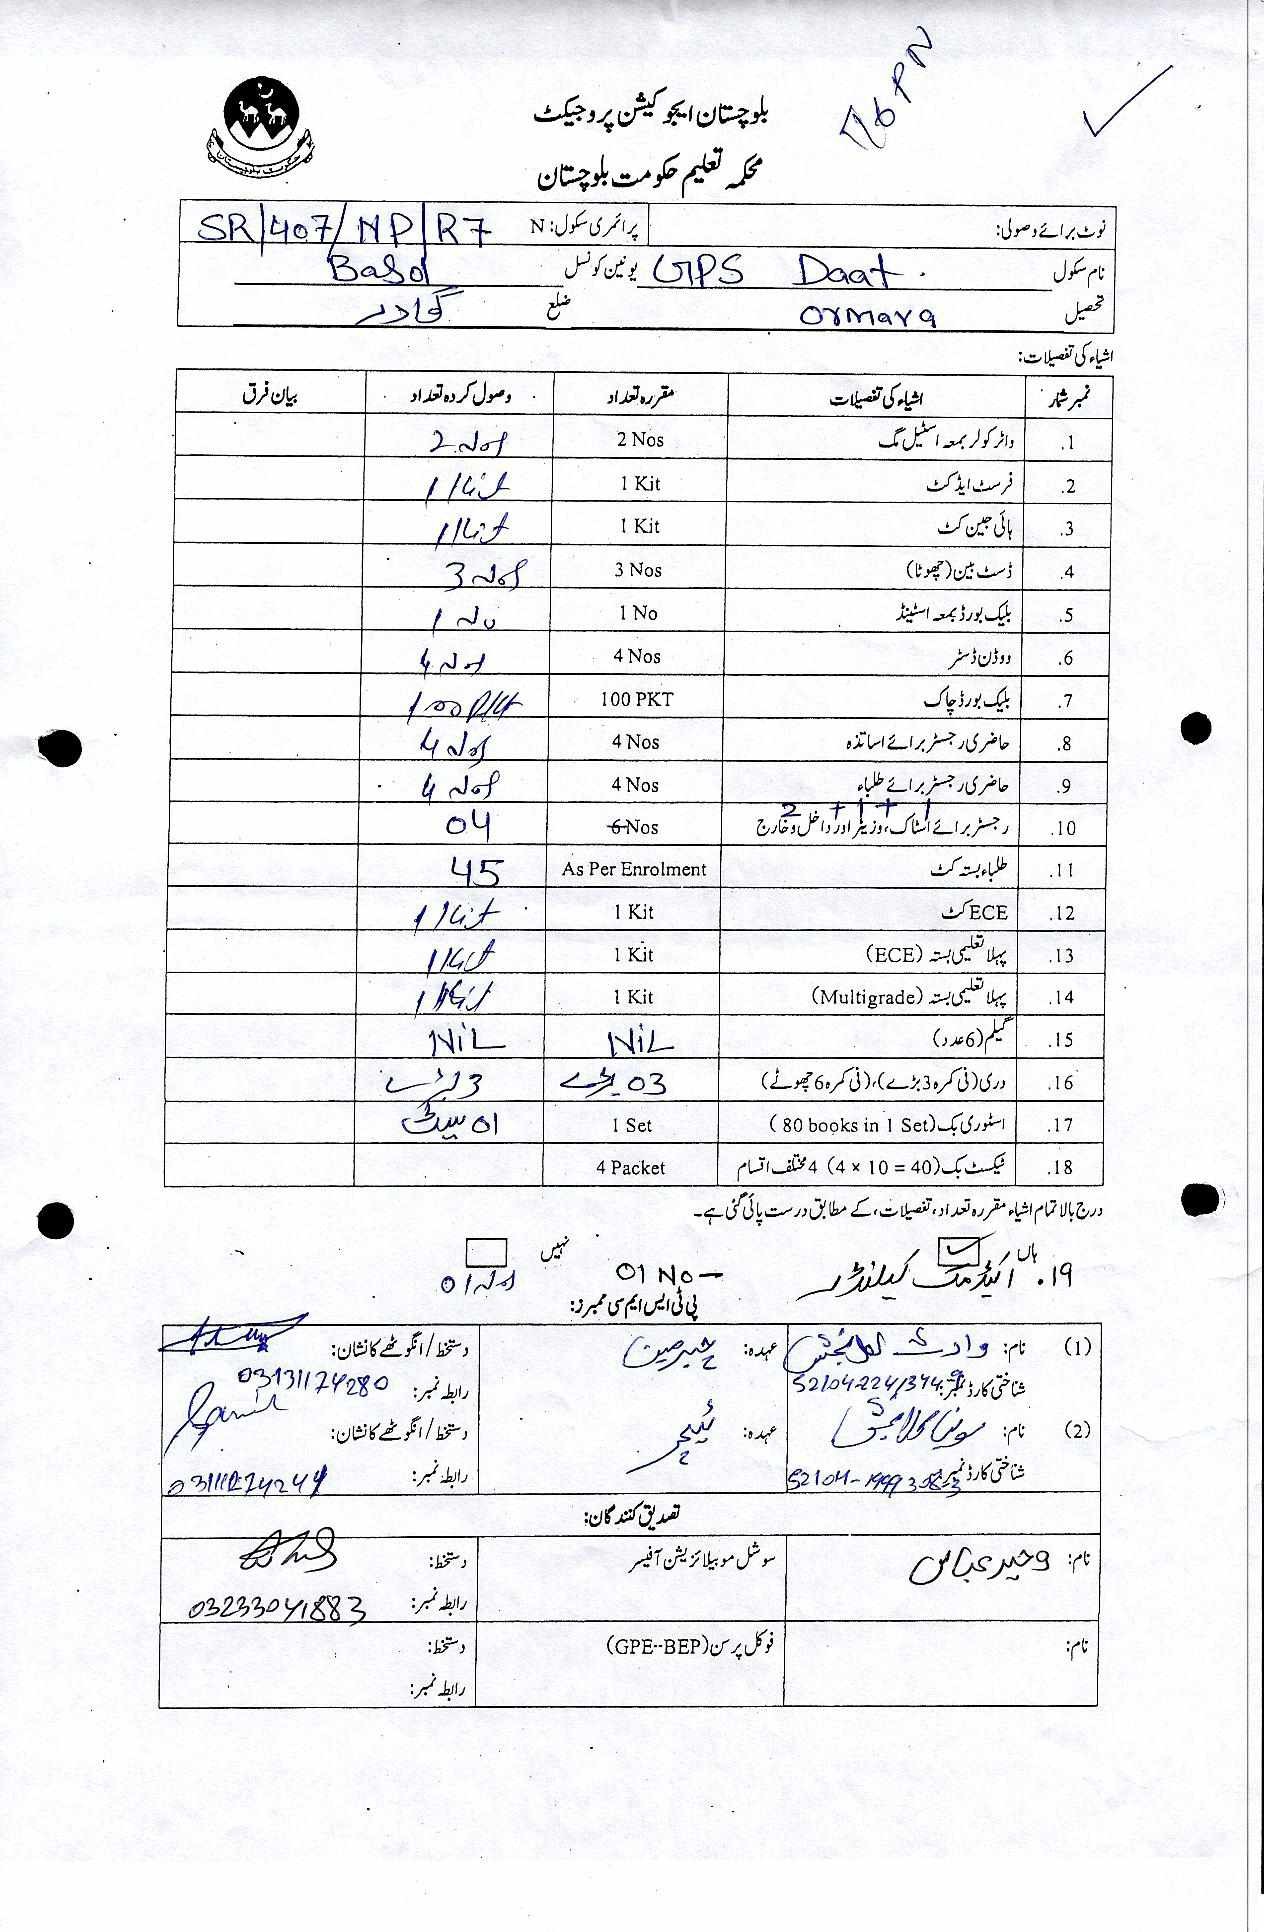 بلوچستان ایجوکیشن پروجیکٹ
محکمہ تعلیم حکومت بلوچستان
نوٹ برائے وصولی: پرائمری سکول: N SR/407/NP/R7
نام سکول GPS Daat یونین کونسل Basol
تحصیل Ormara ضلع گوادر
اشیاء کی تفصیلات:
نمبر شمار اشیاء کی تفصیلات مقررہ تعداد وصول کردہ تعداد بیان فرق
1. واٹر کولر بمعہ اسٹیل مگ 2 Nos 2 Nos
2. فرسٹ ایڈ کٹ 1 Kit 1 Kit
3. ہائی جین کٹ 1 Kit 1 Kit
4. ڈسٹ بین (چھوٹا) 3 Nos 3 Nos
5. بلیک بورڈ بمعہ اسٹینڈ 1 No 1 No
6. ووڈن ڈسٹر 4 Nos 4 Nos
7. بلیک بورڈ چاک 100 PKT 100 PKT
8. حاضری رجسٹر برائے اساتذہ 4 Nos 4 Nos
9. حاضری رجسٹر برائے طلباء 4 Nos 4 Nos
2 + 1 + 1
10. رجسٹر برائے اسٹاک، وزیٹر اور داخل و خارج 6 Nos 04
11. طلباء بستہ کٹ As Per Enrolment 45
12. ECE کٹ 1 Kit 1 Kit
13. پہلا تعلیمی بستہ (ECE) 1 Kit 1 Kit
14. پہلا تعلیمی بستہ (Multigrade) 1 Kit 1 Kit
15. گیم (6 عدد) NiL NiL
16. دری (فی کمرہ 3 بڑے)، (فی کمرہ 6 چھوٹے) 03 بڑے 3 بڑے
17. اسٹوری بک (80 books in 1 Set) 1 Set 01 سیٹ
18. ٹیکسٹ بک (4 × 10 = 40) 4 مختلف اقسام 4 Packet
درج بالا تمام اشیاء مقررہ تعداد، تفصیلات، کے مطابق درست پائی گئی ہے۔
ہاں نہیں
19. اکیڈمک کیلنڈر 01 No 01 No
پی ٹی ایس ایم سی ممبرز:
(1) نام: عہدہ: چیرمین دستخط/انگوٹھے کا نشان:
شناختی کارڈ نمبر: رابطہ نمبر: 03131174280
(2) نام: عہدہ: ٹیچر دستخط/انگوٹھے کا نشان:
شناختی کارڈ نمبر: رابطہ نمبر:
تصدیق کنندگان:
نام: وحید عباس سوشل موبیلائزیشن آفیسر دستخط:
رابطہ نمبر: 03233041883
نام: فوکل پرسن (GPE--BEP) دستخط:
رابطہ نمبر: